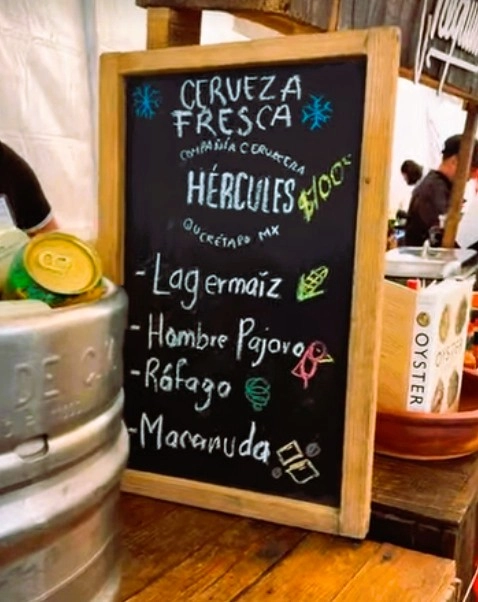 CERVEZA
FRESCA
COMPAÑÍA CERVECERA
HÉRCULES
$100
QUERÉTARO MX
- Lagermaíz
- Hombre Pájaro
- Ráfaga
- Macanuda
OYSTER
OYSTER